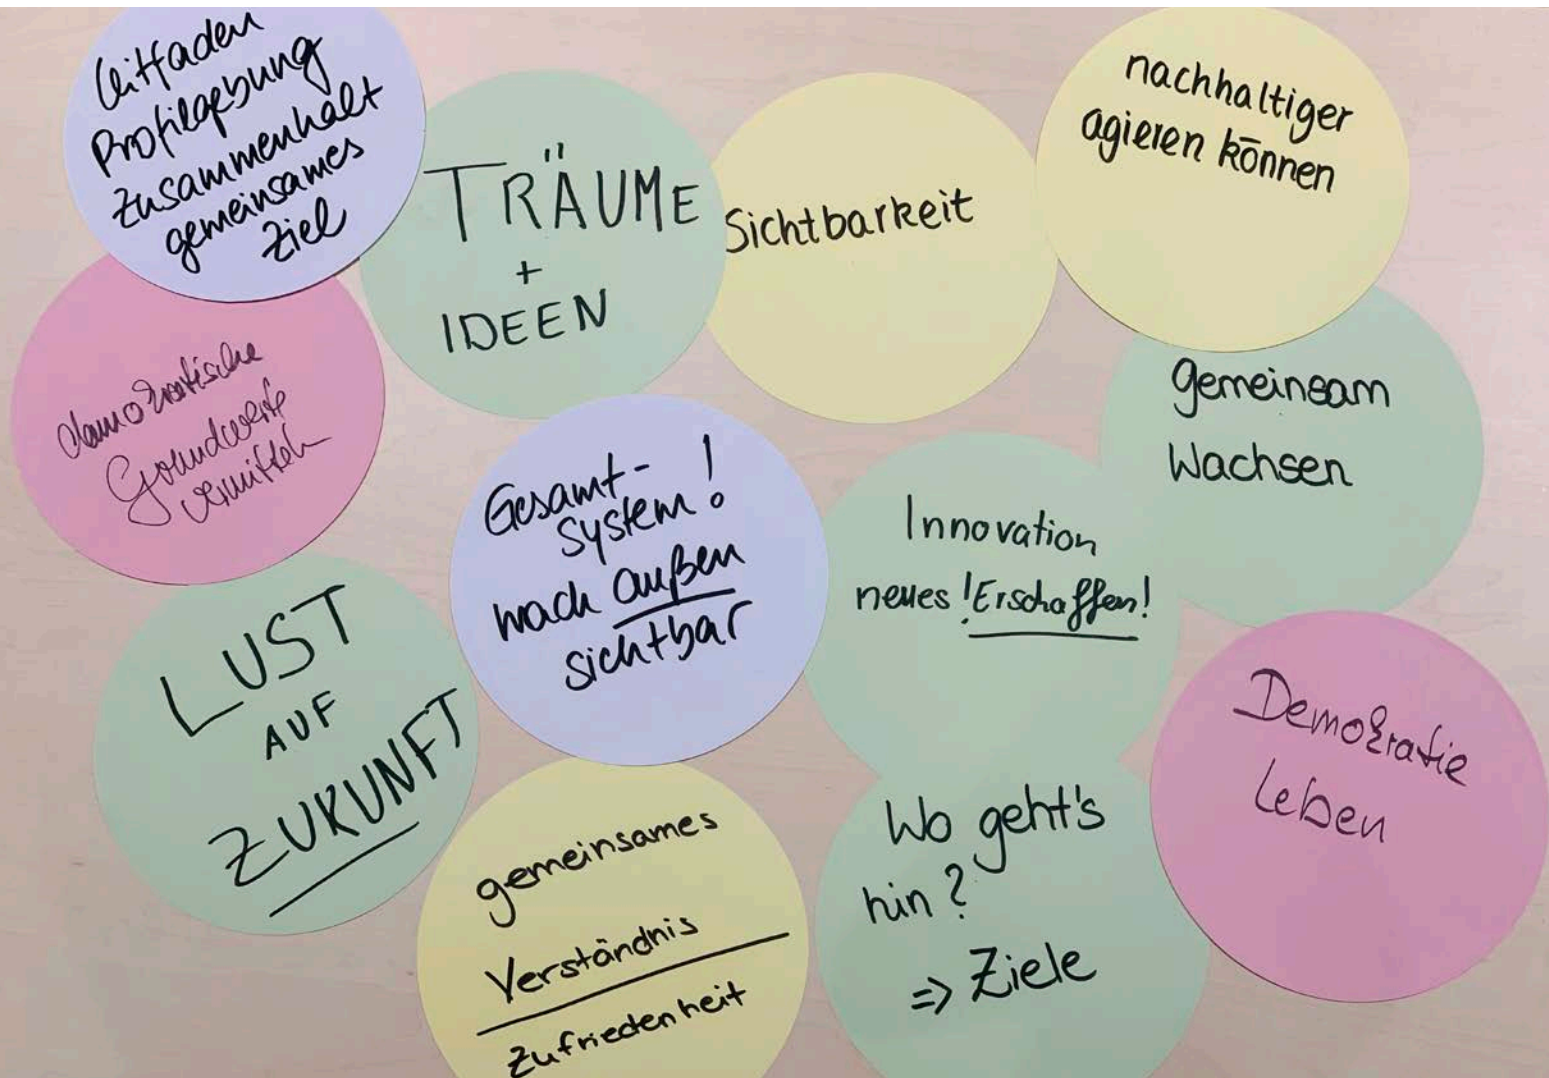 Leitfaden
Profilgebung
Zusammenhalt
gemeinsames
Ziel
TRÄUME
+
IDEEN
Sichtbarkeit
nachhaltiger
agieren können
demokratische
Grundwerte
vermitteln
Gesamt-
system!
nach außen
sichtbar
gemeinsam
Wachsen
Innovation
neues !Erschaffen!
LUST
AUF
ZUKUNFT
gemeinsames
Verständnis
Zufriedenheit
Wo geht's
hin?
=> Ziele
Demokratie
Leben